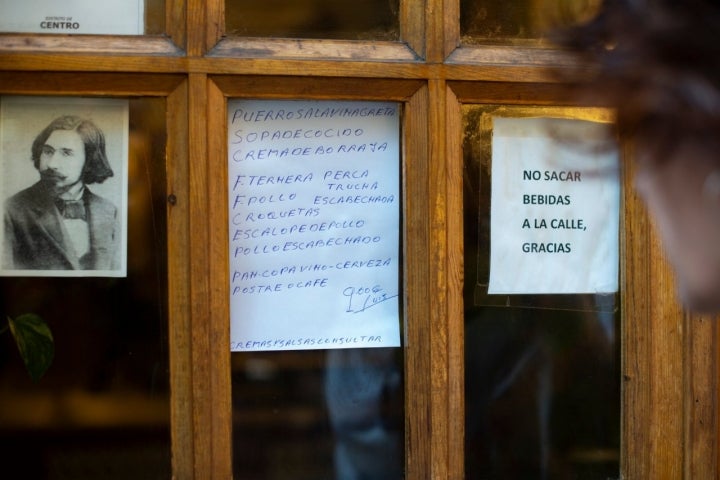 DISTRITO DE
CENTRO
PUERROSALAVINAGRETA
SOPADECOCIDO
CREMADEBORRAJA
F. TERNERA PERCA
TRUCHA
F. POLLO ESCABECHADA
CROQUETAS
ESCALOPEDEPOLLO
POLLOESCABECHADO
PAN-COPAVINO-CERVEZA
POSTRE O CAFE
9,00€
CREMASYSALSASCONSULTAR
NO SACAR
BEBIDAS
A LA CALLE,
GRACIAS